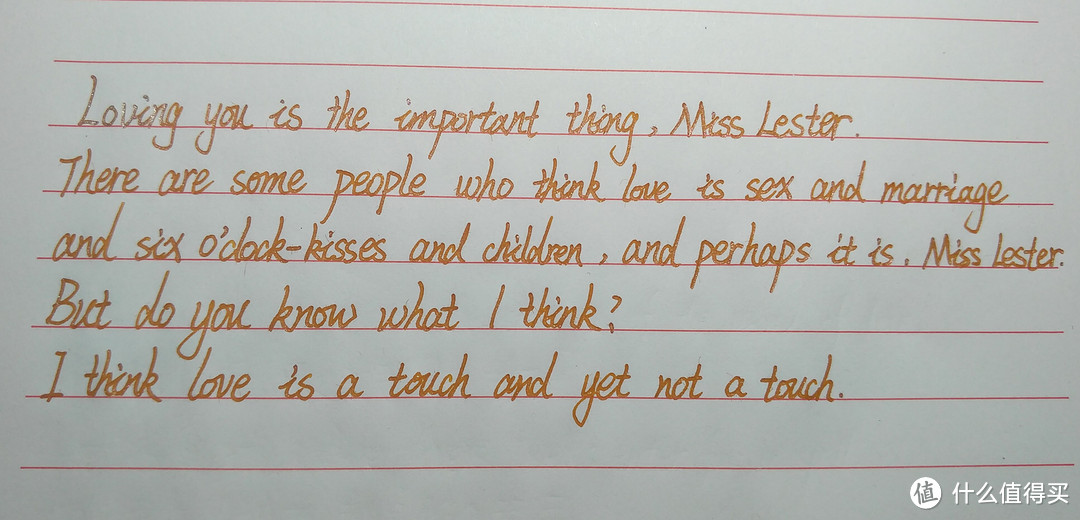 Loving you is the important thing, Miss Lester.
There are some people who think love is sex and marriage
and six o'clock-kisses and children, and perhaps it is, Miss Lester.
But do you know what I think?
I think love is a touch and yet not a touch.
值 什么值得买